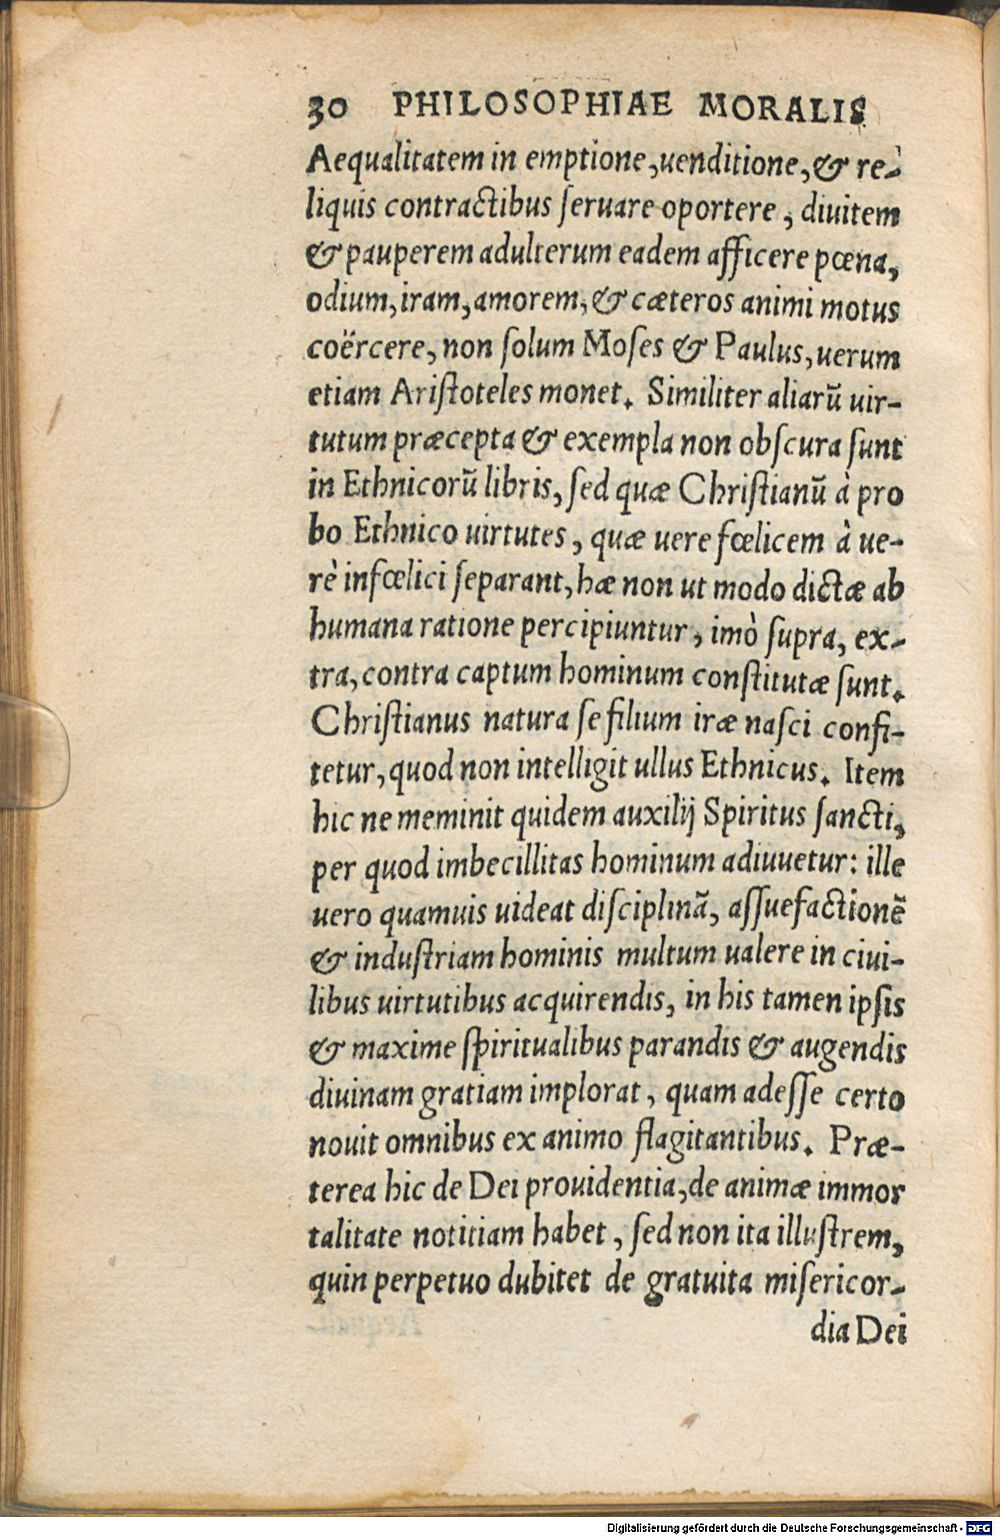 30 PHILOSOPHIAE MORALIS
Aequalitatem in emptione, uenditione, & re-
liquis contractibus ſeruare oportere, diuitem
& pauperem adulterum eadem afficere pœna,
odium, iram, amorem, & cæteros animi motus
coërcere, non ſolum Moſes & Paulus, uerum
etiam Ariſtoteles monet. Similiter aliarũ uir-
tutum præcepta & exempla non obſcura ſunt
in Ethnicorũ libris, ſed quæ Chriſtianũ à pro
bo Ethnico uirtutes, quæ uere fœlicem à ue-
rè infœlici ſeparant, hæ non ut modo dictæ ab
humana ratione percipiuntur, imò ſupra, ex-
tra, contra captum hominum conſtitutæ ſunt.
Chriſtianus natura ſe filium iræ naſci confi-
tetur, quod non intelligit ullus Ethnicus. Item
hic ne meminit quidem auxilij Spiritus ſancti,
per quod imbecillitas hominum adiuuetur: ille
uero quamuis uideat diſciplinã, aſſuefactionẽ
& induſtriam hominis multum ualere in ciui-
libus uirtutibus acquirendis, in his tamen ipſis
& maxime ſpiritualibus parandis & augendis
diuinam gratiam implorat, quam adeſſe certo
nouit omnibus ex animo flagitantibus. Præ-
terea hic de Dei prouidentia, de animæ immor
talitate notitiam habet, ſed non ita illuſtrem,
quin perpetuo dubitet de gratuita miſericor-
dia Dei
Digitalisierung gefördert durch die Deutsche Forschungsgemeinschaft - DFG